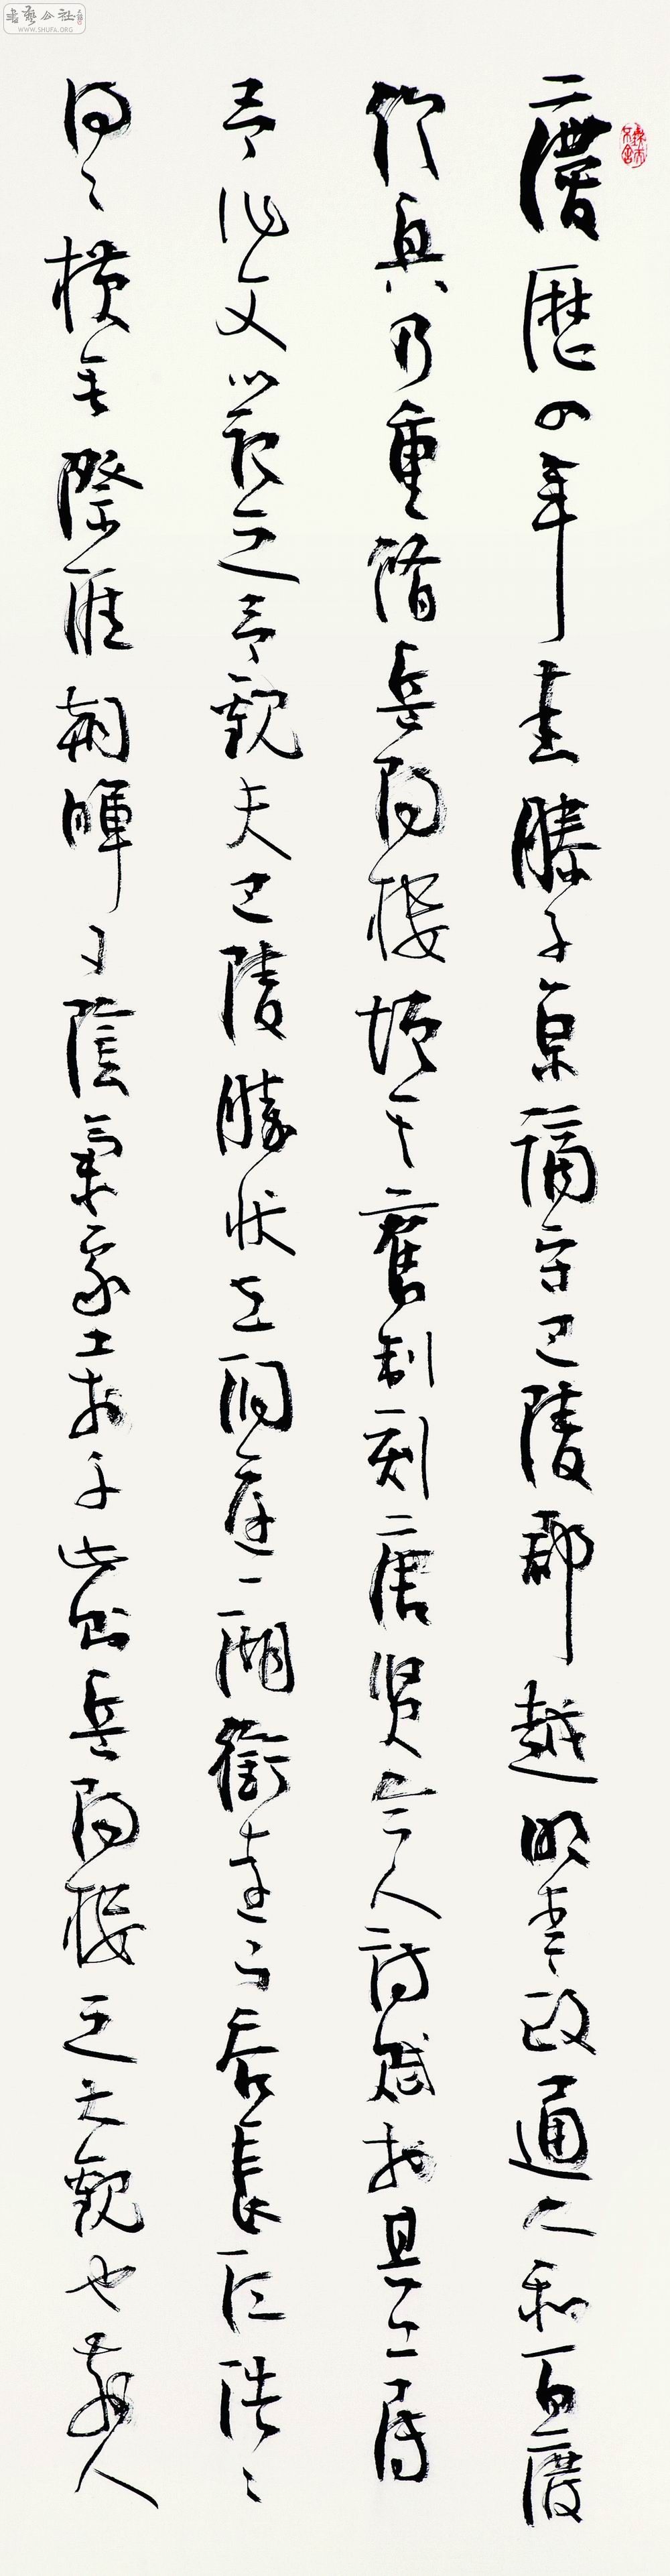 書藝公社
WWW.SHUFA.ORG
慶歷四年春滕子京謫守巴陵郡越明年政通人和百廢
俱興乃重脩岳陽樓增其舊制刻唐賢今人詩賦於其上屬
予作文以記之予觀夫巴陵勝狀在洞庭一湖銜遠山吞長江浩〻
湯〻橫無際涯朝暉夕陰氣象萬千此則岳陽樓之大觀也前人